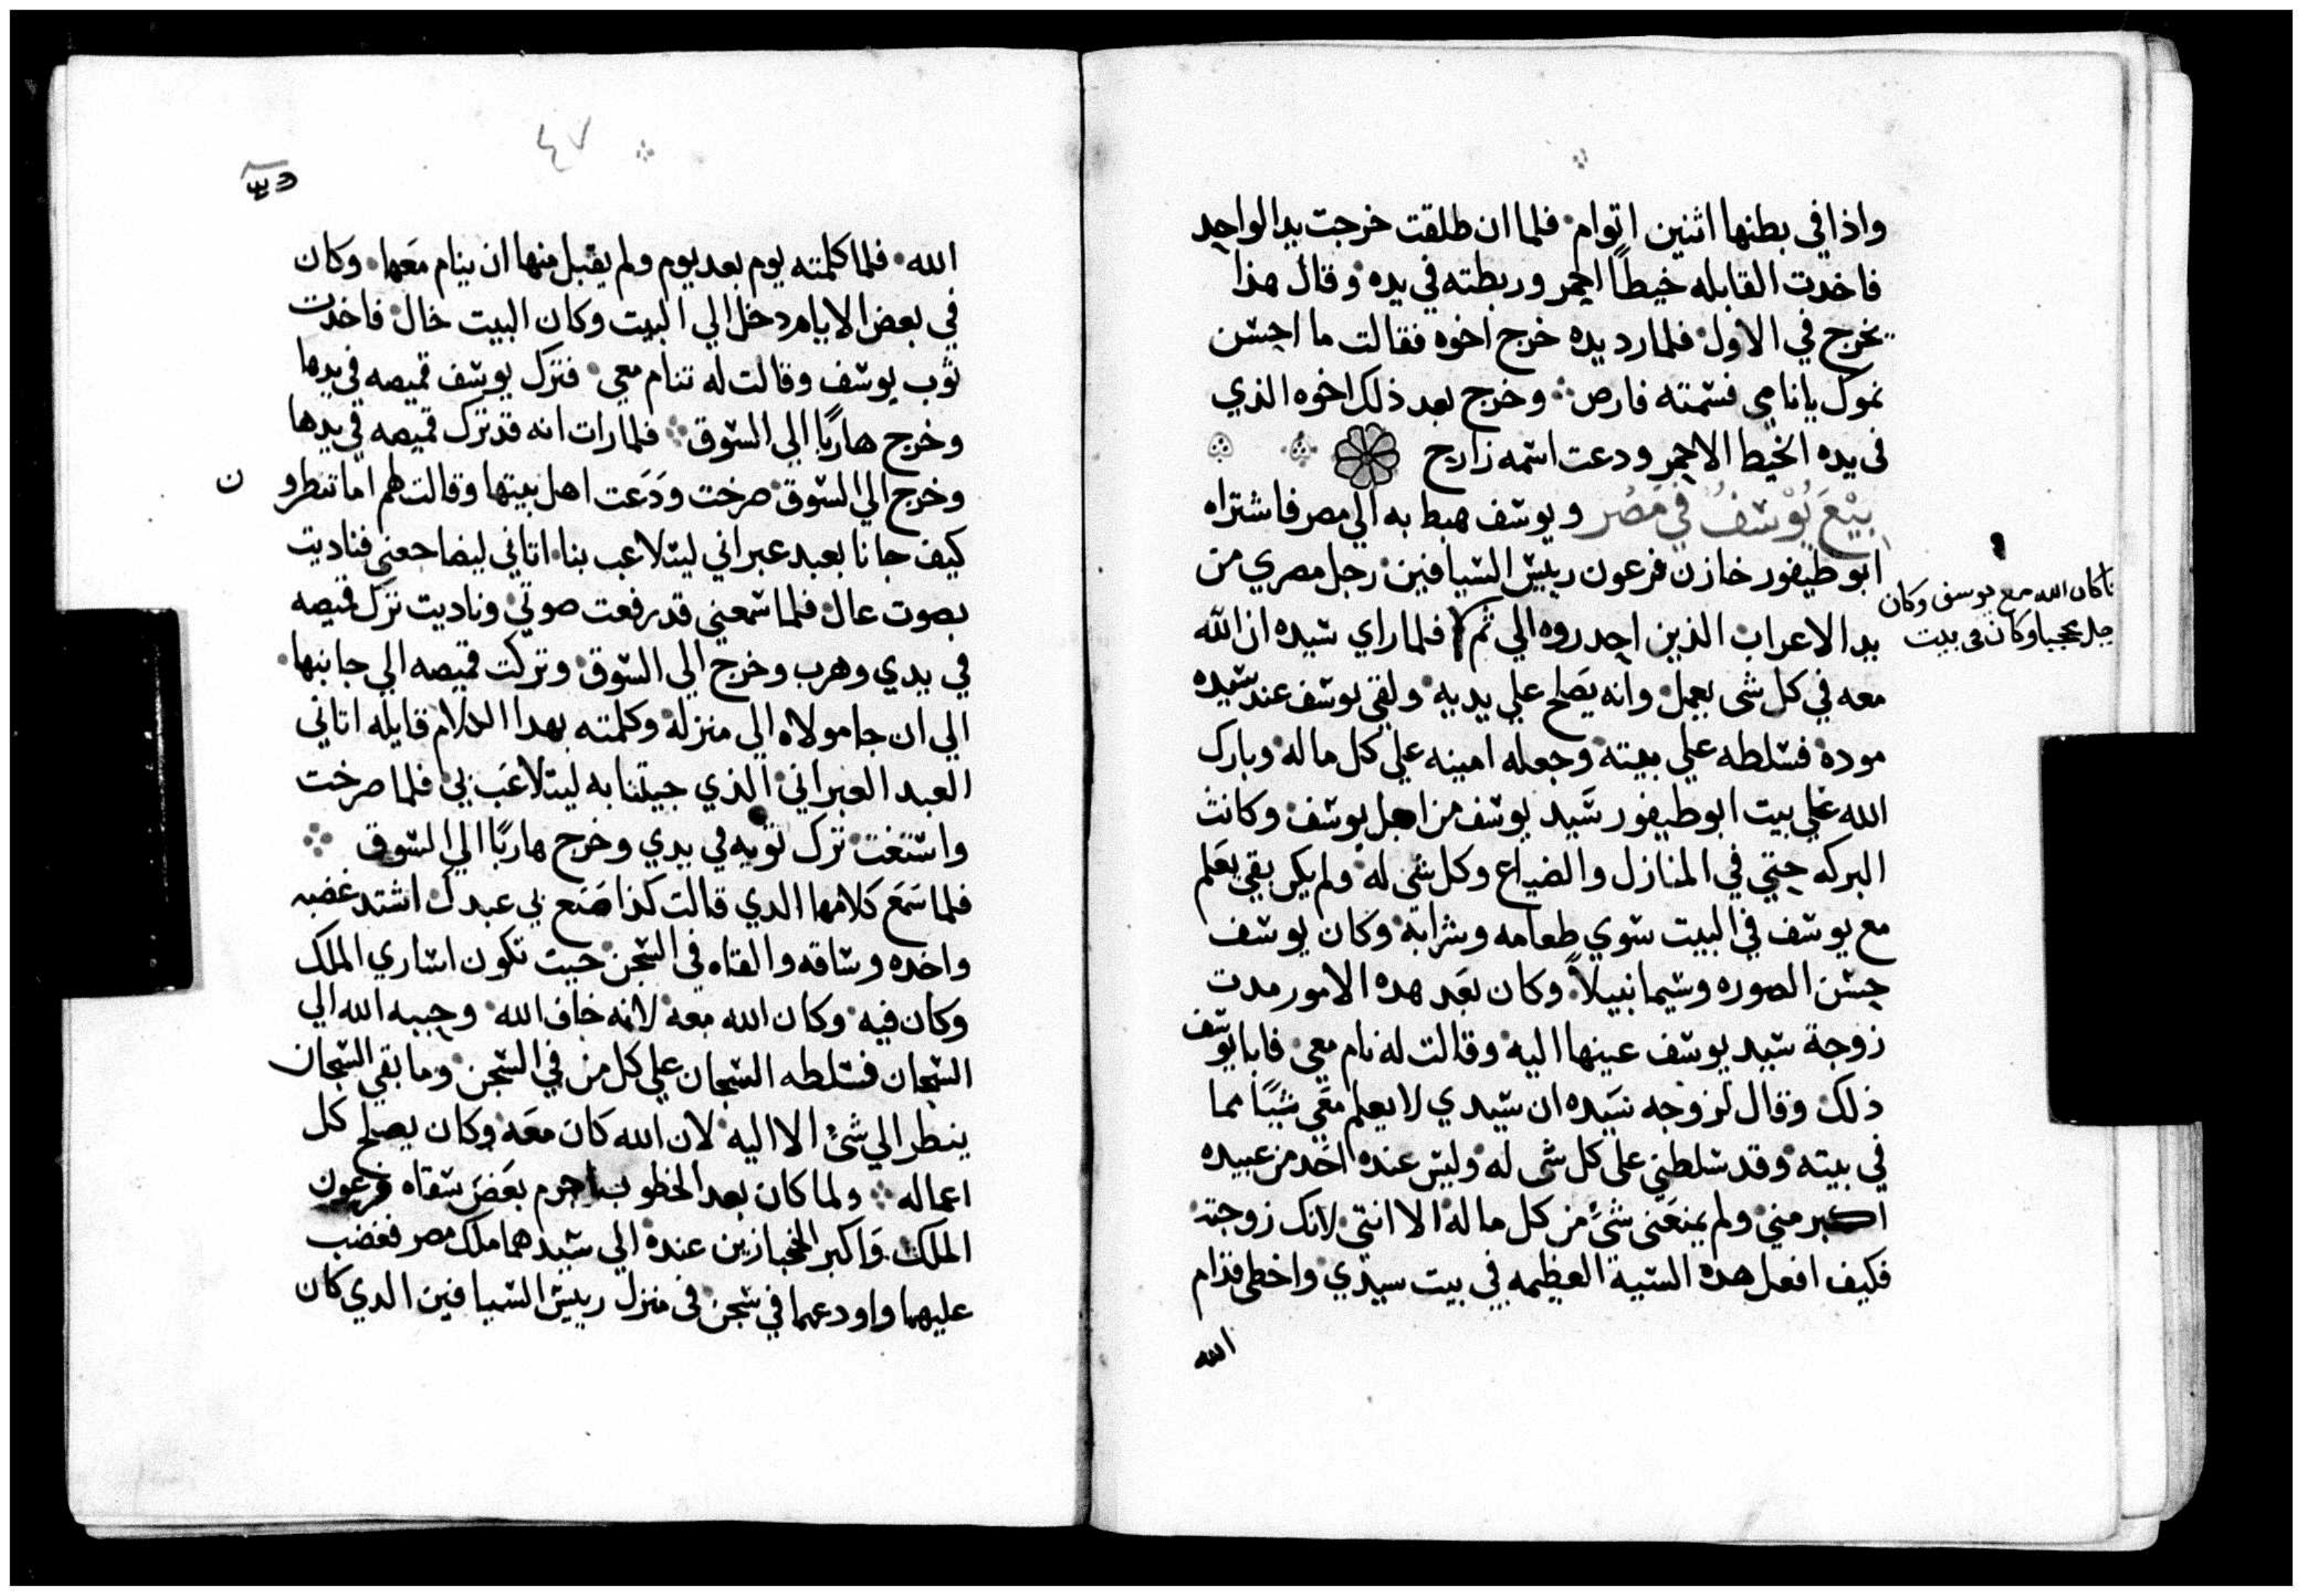 واذا في بطنها اثنين اتوام فلما ان طلقت خرجت يد الواحد
فاخدت القابله خيطاً احمر وربطته في يده وقال هذا
يخرج في الاول فلما رد يده خرج اخوه فقالت ما احسن
نموك يا نامي فسمته فارص وخرج بعد ذلك اخوه الذي
في يده الخيط الاحمر ودعت اسمه زارح
بيْعَ يُوْسفُ في مَصْر ويوسف هبط به الي مصر فاشتراه
ابوطيفور خازن فرعون رييس السيافين رجل مصري من
يد الاعراب الذين احدروه الي ثم فلما راي سيده ان الله
معه في كل شي يعمل وانه يَصلح علي يديه ولقي يوسف عند سيده
موده فسلطه علي بيته وجعله امينه علي كل ماله وبارك
الله علي بيت ابوطيفور سَيد يوسف من اجل يوسف وكانت
البركه حتي في المنازل والضياع وكل شي له ولم يكن بقي يعَلم
مع يوسف في البيت سوي طعامه وشرابه وكان يوسف
حسن الصوره وسيما نبيلاً وكان بعَد هده الامور مدت
زوجة سيد يوسف عينها اليه وقالت له نام معي فابا يوسف
ذلك وقال لزوجه سَيده ان سيدي لا يعلم معَي شيًا مما
في بيته وقد سلطني علي كل شي له وليس عنده احَد من عبيده
اكبر مني ولم يمنعَني شيً من كل ماله الا انتي لانك زوجته
فكيف افعل هده السية العظيمه في بيت سيدي واخطي قدام
الله
كان الله مع يوسف وكان
وكان في بيت
٤٧
الله فلما كلمته يوم بعد يوم ولم يقبل منها ان ينام معَها وكان
في بعض الايام دخل الي البيت وكان البيت خال فاخدت
ثوب يوسف وقالت له تنام معي فترك يوسف قميصه في يدها
وخرج هاربًا الي السوق فلما رات انه قد ترك قميصه في يدها
وخرج الي السوق صرخت ودَعَت اهل بيتها وقالت لهم اما تنطرو
ن
كيف جانا بعبد عبراني ليتلاعب بنا اتاني ليضاجعني فناديت
بصوت عال فلما سمعني قد رفعت صوتي وناديت ترك قميصه
في يدي وهرب وخرج الي السوق وتركت قميصه الي جانبها
الي ان جا مولاه الي منزله وكلمته بهدا الكلام قايله اتاني
العبد العبراني الذي جيتنا به ليتلاعَب بي فلما صرخت
واستغت ترك ثوبه في يدي وخرج هاربًا الي السوق
فلما سَمَعَ كَلامها الدي قالت كذا صَنَع بي عبدك اشتد غضبه
واخده وساقه والقاه في السجن حيت تكون اساري الملك
وكان فيه وكان الله معه لانه خاف الله وحببه الله الي
السجان فسلطه السجان علي كل من في السجن وما بقي السجان
ينطر الي شيً الا اليه لان الله كان معَه وكان يصلح كل
اعماله ولما كان بعد الخطوب اجرم بعَض سقاه فرعون
الملك وَاكبر الخبازين عنده الي سيدهما ملك مصر فغضب
عليهما واودعهما في سجن في منزل رييس السيافين الدي كان